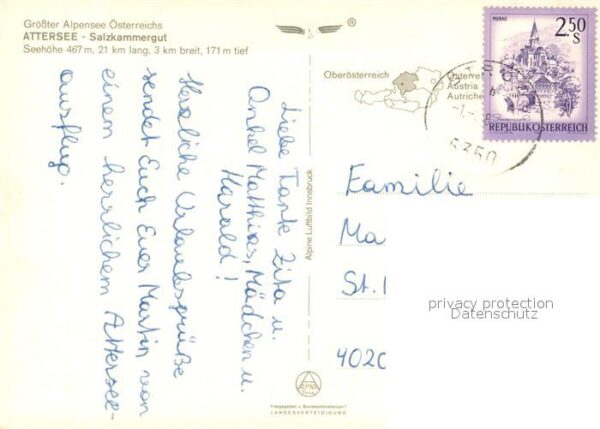 Größter Alpensee Österreichs
ATTERSEE - Salzkammergut
Seehöhe 467 m, 21 km lang, 3 km breit, 171 m tief
®
Liebe Tante Zita u.
Onkel Matthias, Mädchen u.
Harald!
Herzliche Urlaubsgrüße
sendet Euch Euer Martin von
einem herrlichem Attersee-
ausflug.
Alpine Luftbild Innsbruck
Freigegeben v. Bundesministerium f.
LANDESVERTEIDIGUNG
Oberösterreich
Österreich
Austria
Autriche
MURAU
2.50
S
REPUBLIK ÖSTERREICH
5350
Familie
Ma
St.
4020
privacy protection
Datenschutz